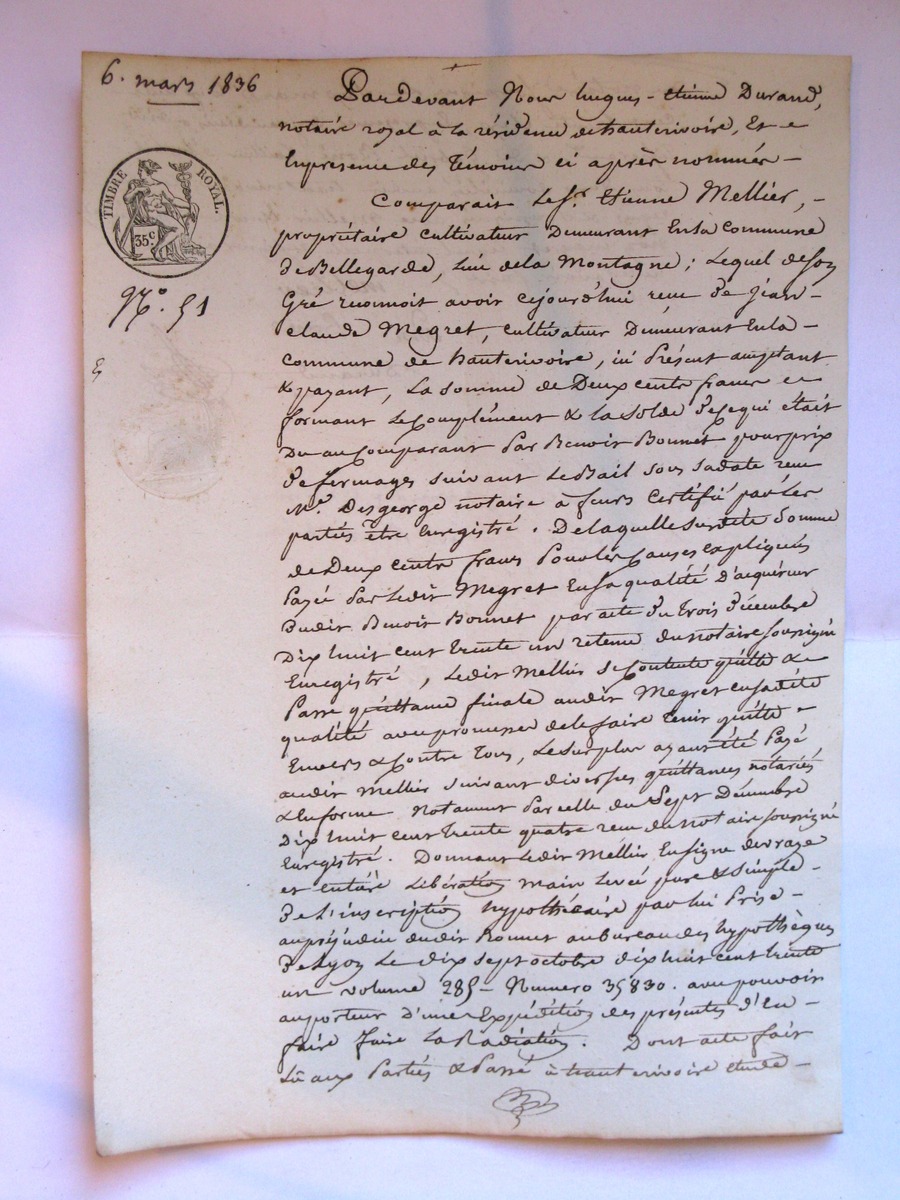 6. mars 1836
TIMBRE ROYAL
35c
No. 51
Pardevant Nous hugues-Etienne Durand,
notaire royal à la résidence de hauterivoire, Et
Enpresence des Témoins ci après nommés
Comparait Le Sr. Etienne Mellier,
propriétaire cultivateur Demeurant En la Commune
de Bellegarde, Lieu dela Montagne; Lequel de son
Gré reconnoit avoir cejourd'hui recu de jean-
claude Megret, cultivateur Demeurant En la
commune de hauterivoire, ici Présent acceptant
& payant, La somme de Deux cents francs
formant Le Complément & la solde de Ce qui était
Du au Comparant Par Benoit Bonnet pour prix
de fermages suivant Le Bail sous sa date recu
Me. Desgeorge notaire à feurs Certifié par Les
partiés être Enregistré. De laquelle susdite Somme
de Deux cents francs Pour les Causes expliquées
Payée Par Ledit Megret En sa qualité D'acquéreur
Dudit Benoit Bonnet par acte du trois Décembre
Dix huit cent trente un retenu du notaire soussigné
Enregistré, Ledit Mellier se Contente quitte &
Passe quittance finale audit Megret en sadite
qualité avec promesse de le faire tenir quitte
Envers & Contre Tous, Le surplus ayant été Payé
audit Mellier suivant diverses quittances notariés
& En forme Notament Par celle du Sept Décembre
Dix huit cent trente quatre recu du notaire soussigné
Enregistré. Donnant Ledit Mellier En signe de vraye
et entière Libération main levée pure & simple
de L'inscription hypothécaire par lui Prise
au préjudice dudit Bonnet au bureau des hypothèques
de Lyon Le dix sept octobre dix huit cent trente
un volume 285 - Numero 35830. avec pouvoir
au porteur D'une Expédition des présentes d'En
faire faire La Radiation. Dont acte fait
Lû aux Partiés & Passé à hauterivoire etude